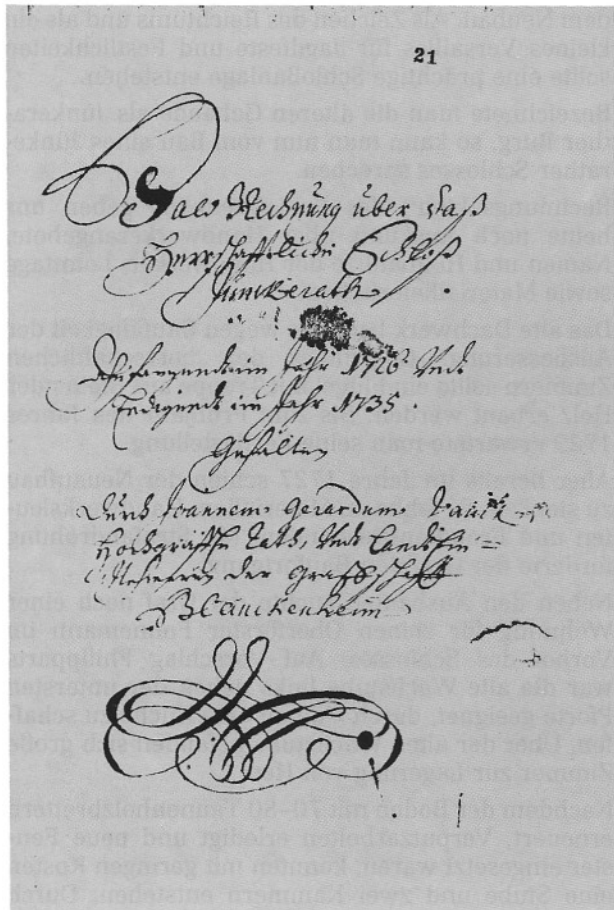 21
Baw Rechnung über daß
Herrschafftliche Schloß
Junckerath
Anfangendt im Jahr 1726 Undt
Endigendt im Jahr 1735
Gehalten
Durch Joannem Gerardum
Hochgräffl. Rath, Undt Landts
der Graffschafft
Blanckenheim